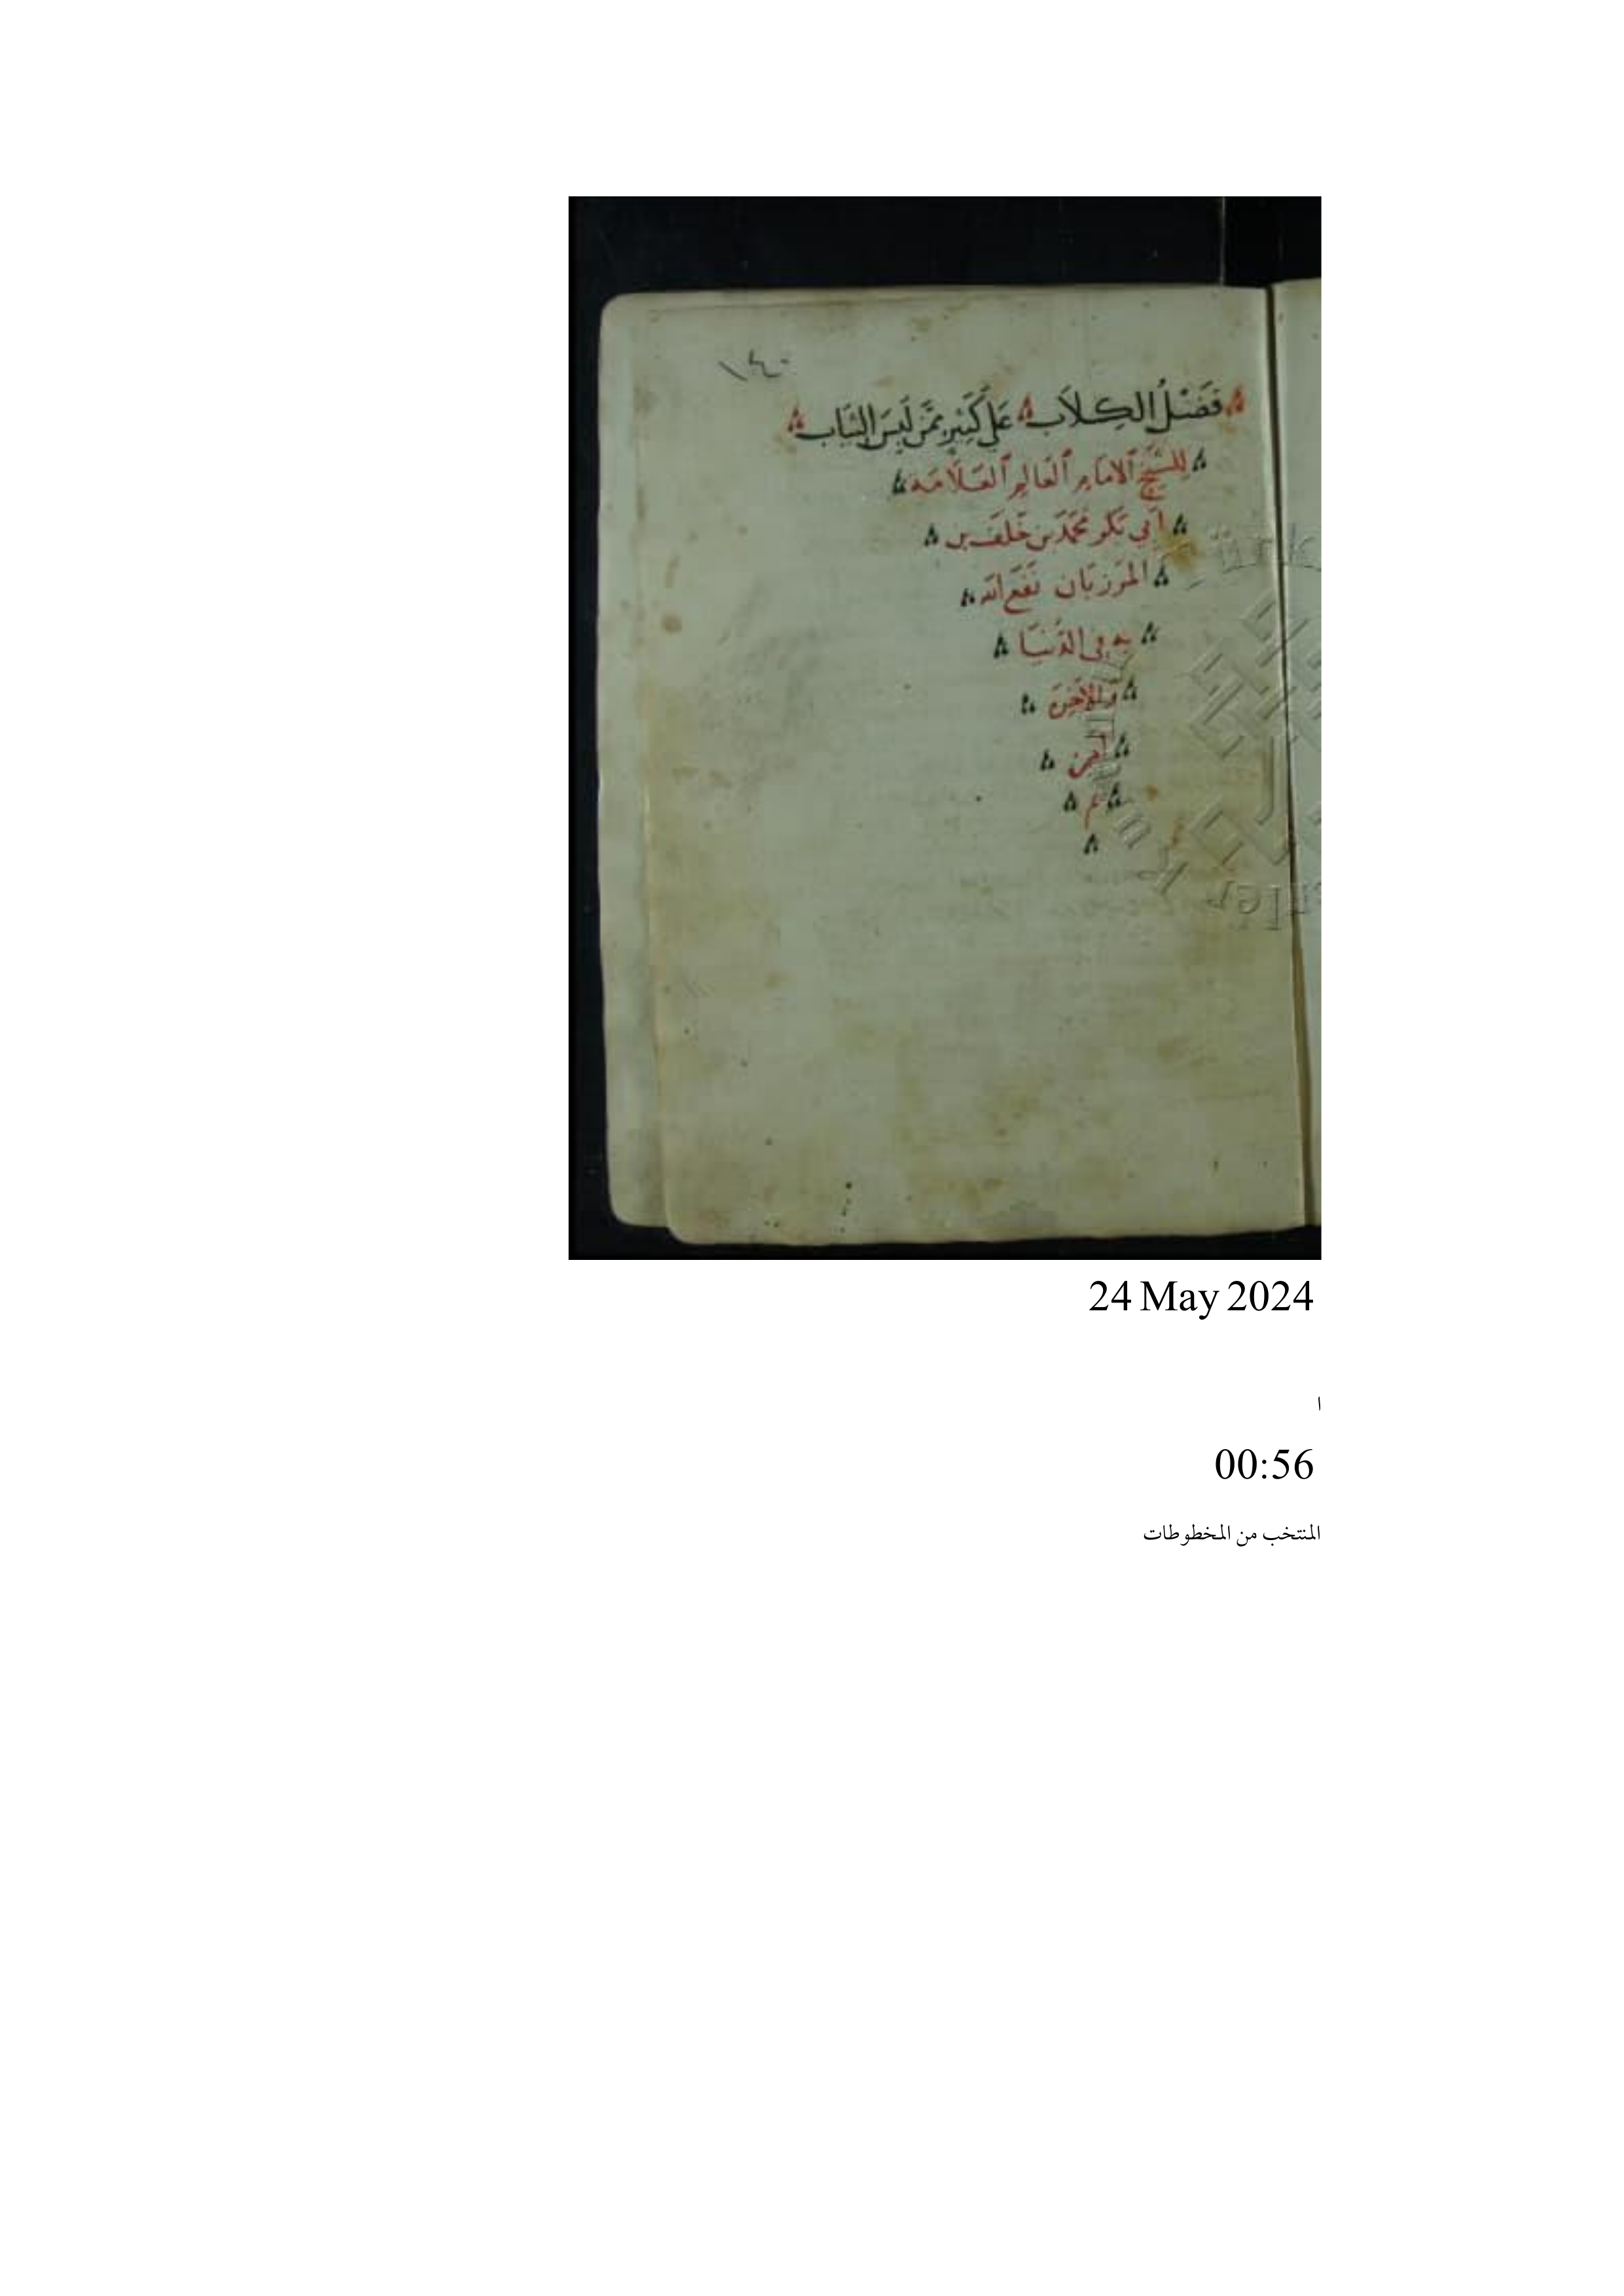 ١٤٠
فَضْلُ الكِلَاب عَلَى كَثِيرٍ مِمَّنْ لَبِسَ الثِّيَاب
لِلشَّيْخِ الْاِمَامِ الْعَالِمِ الْعَلَّامَة
اَبِي بَكْر مُحَمَّد بن خَلَف بن
المَرْزُبَان نَفَعَ الله
بِهِ فِي الدُّنْيَا
وَالاَخِرَة
اٰمِين
م
24 May 2024
ا
00:56
المنتخب من المخطوطات